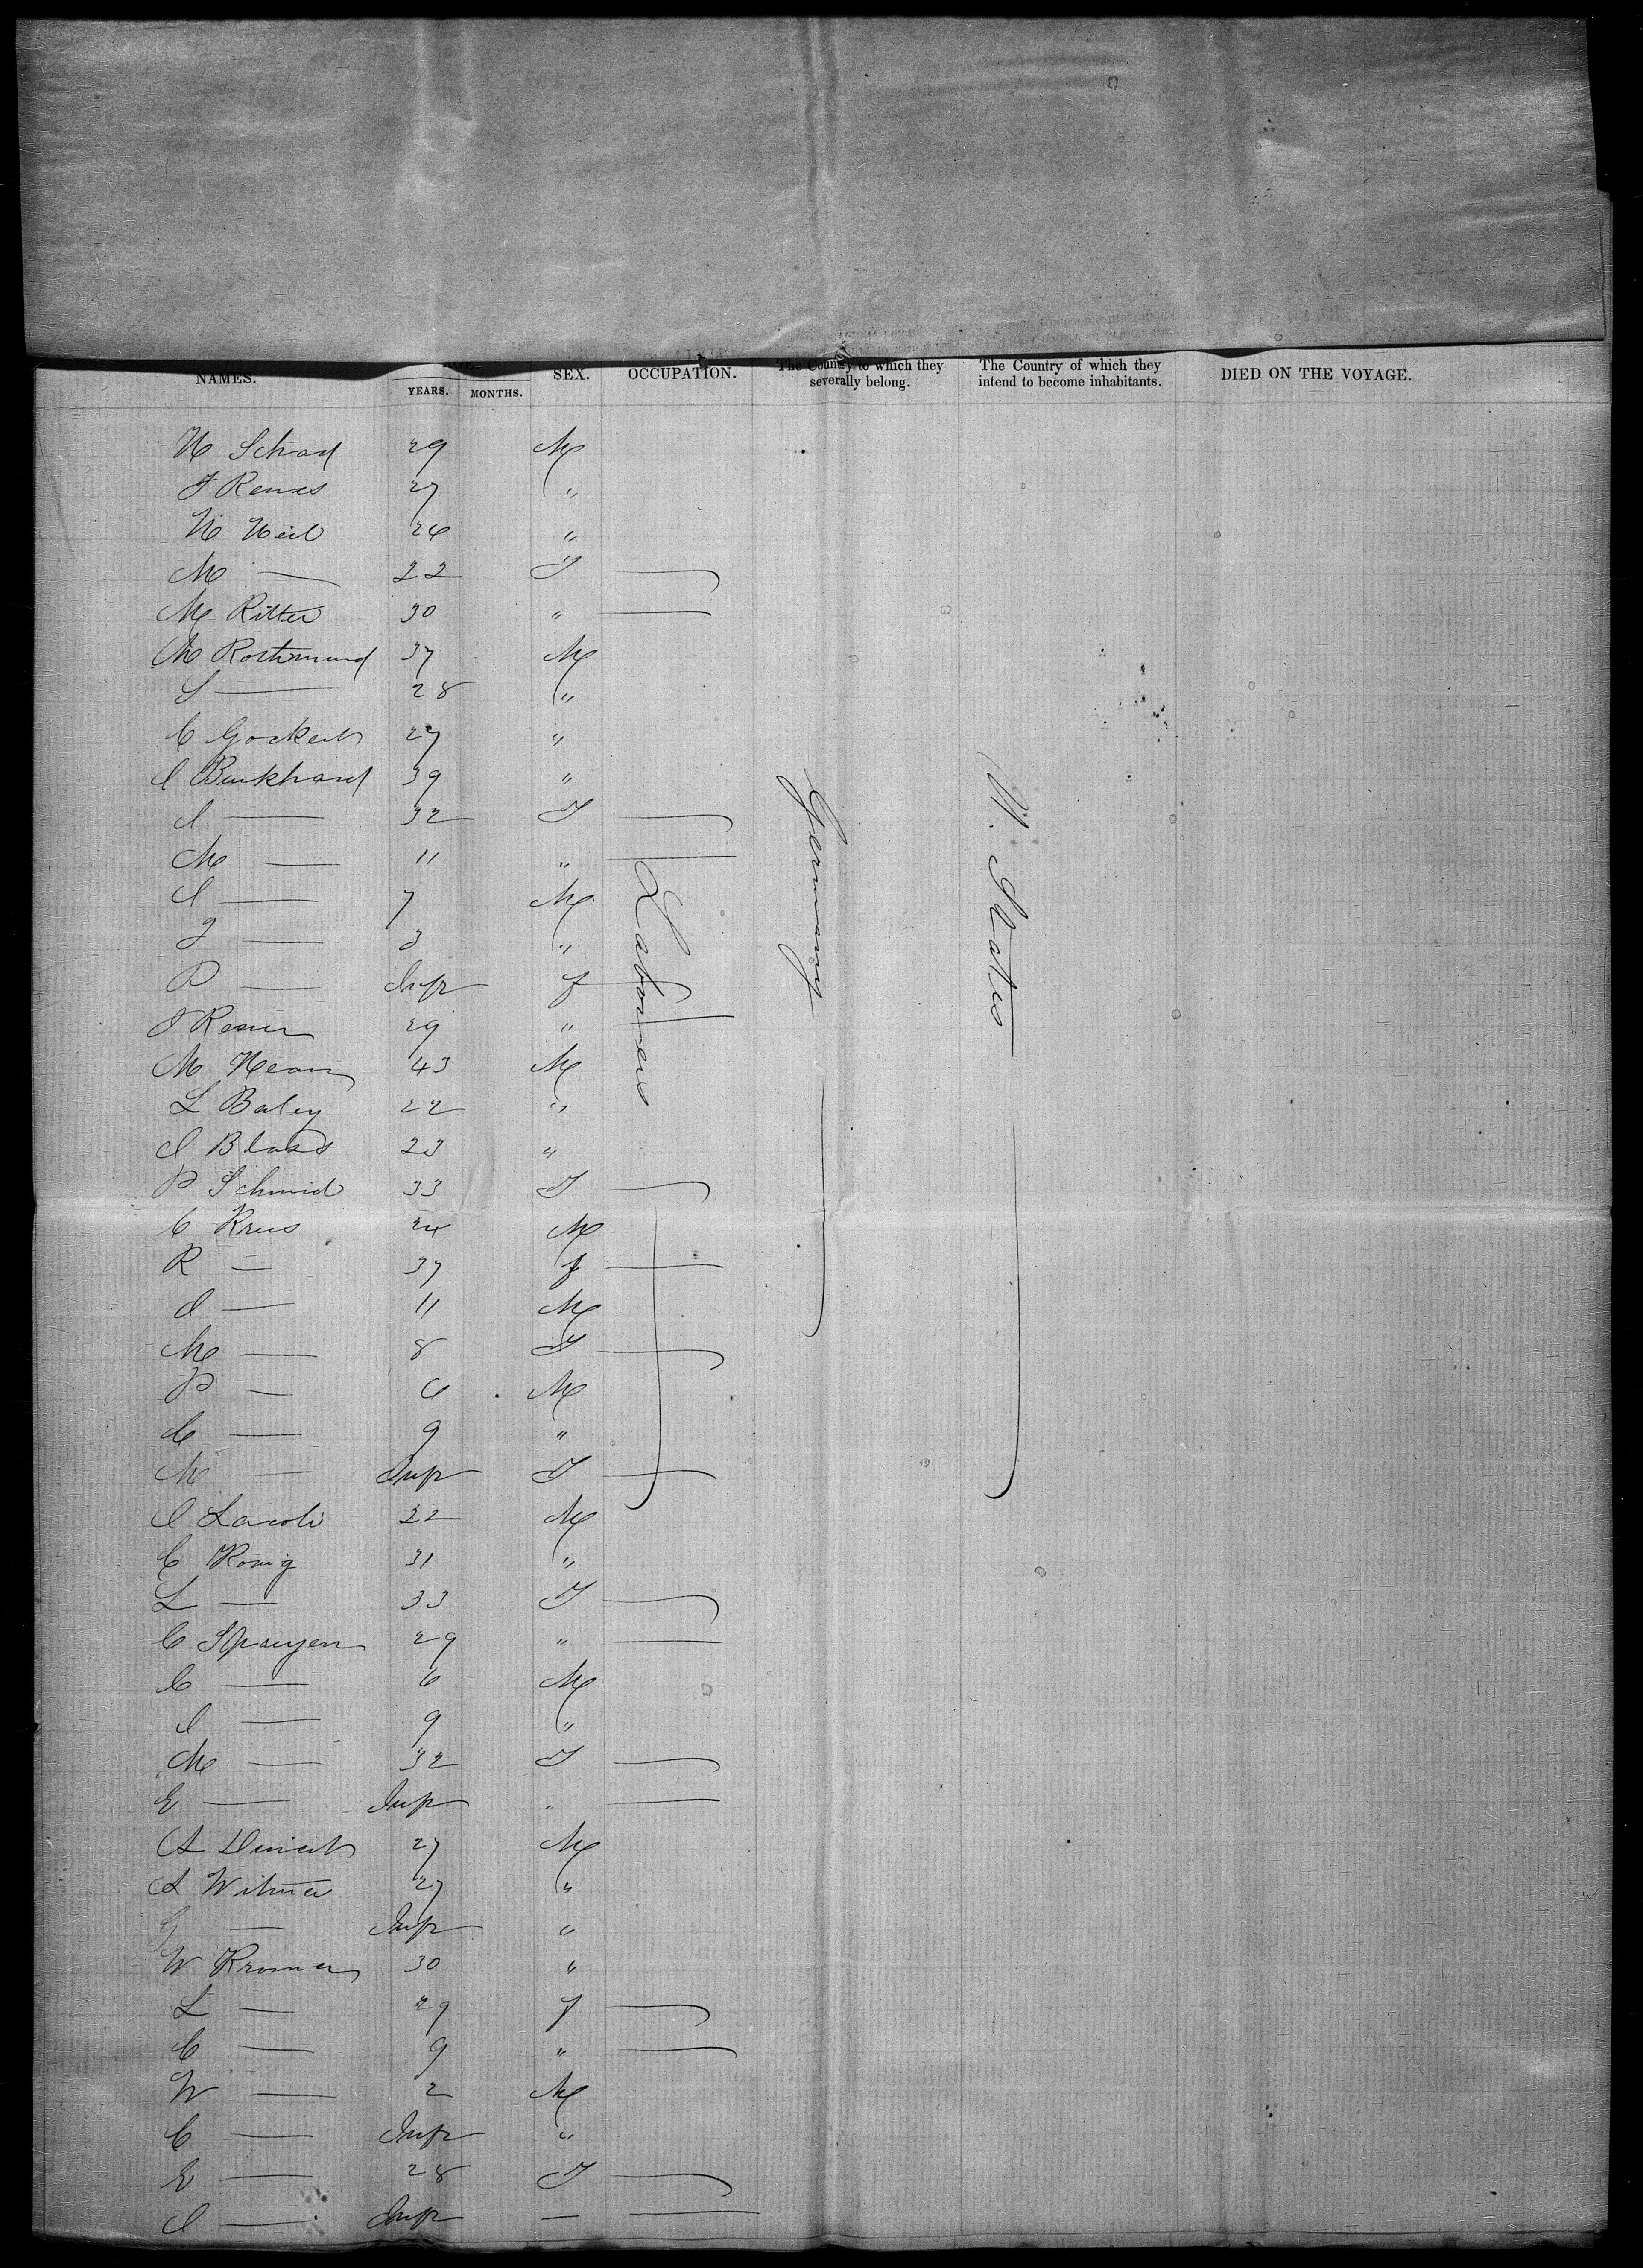 NAMES. YEARS. MONTHS. SEX. OCCUPATION. The Country to which they severally belong. The Country of which they intend to become inhabitants. DIED ON THE VOYAGE.
H Schad 29 M
F 27 "
H Heil 26 "
M — 22 F —
M Ritter 30 " —
M Rothmund 37 M
S — 28 "
C Gockert 27 "
I Burkhard 39 "
I — 32 F —
M — 11 " —
I — 7 M
J — 3 "
P — Inft f —
F 29 " —
M 43 M
L Baley 22 "
I Blass 23 "
P Schmid 33 F —
C Krus 24 M
R — 37 f —
d — 11 M
M — 8 F —
P — 6 M
C — 9 "
M — Inft F —
Labourers
Germany
U. States
I 22 M
C Konig 31 "
L — 33 F —
C 29 " —
C — 6 M
I — 9 "
M — 32 F —
E — Inft " —
A 27 M
A Witmer 27 "
G — Inft "
W Kromer 30 "
L — 29 f —
C — 9 " —
W — 2 M
C — Inft "
E — 28 F —
I — Inft — —